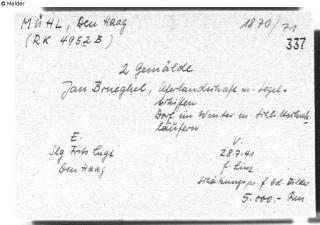 © Melder
MÜHL, Den Haag
1870/71
(RK 4952 B)
337
2 Gemälde
Jan Brueghel, Uferlandschaft m. Segel-
schiffen
Dorf im Winter m. Schlittschuh-
läufern
E.
V.
Slg Frits Lugt
28.7.41
Den Haag
f. Linz
Schätzungspr. f. bd. Bilder
5.000,-